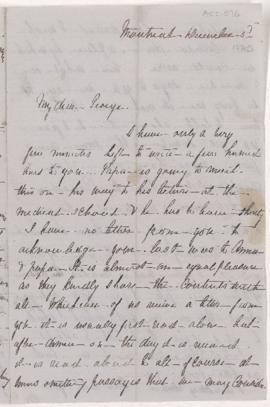 Montreal December 5th
My dear George.
I have only a very
few minutes left to write a few hurried
lines to you. Papa is going to
this on his way to his lecture at the
medical school & he has to leave
I have no letter from you to
acknowledge your last was to Emma
& papa. It is almost an equal pleasure
as they kindly share the contents with
all. Whichever of us receive a letter from
you it is usually first read alone but
after dinner on the day it is received
it is read aloud to all of course at
omitting passages that we may consider